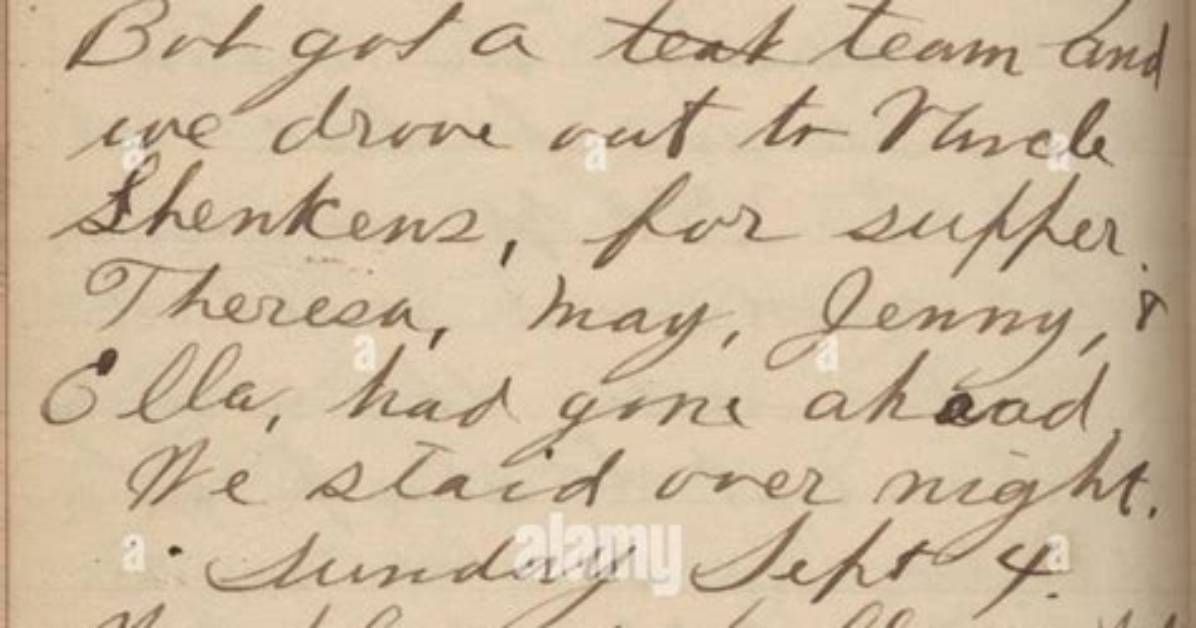 Bob got a teak team and
we drove out to Uncle
Shenkens, for supper.
Theresa, May, Jenny, &
Ella, had gone ahead.
We staid over night.
Sunday Sept 4.